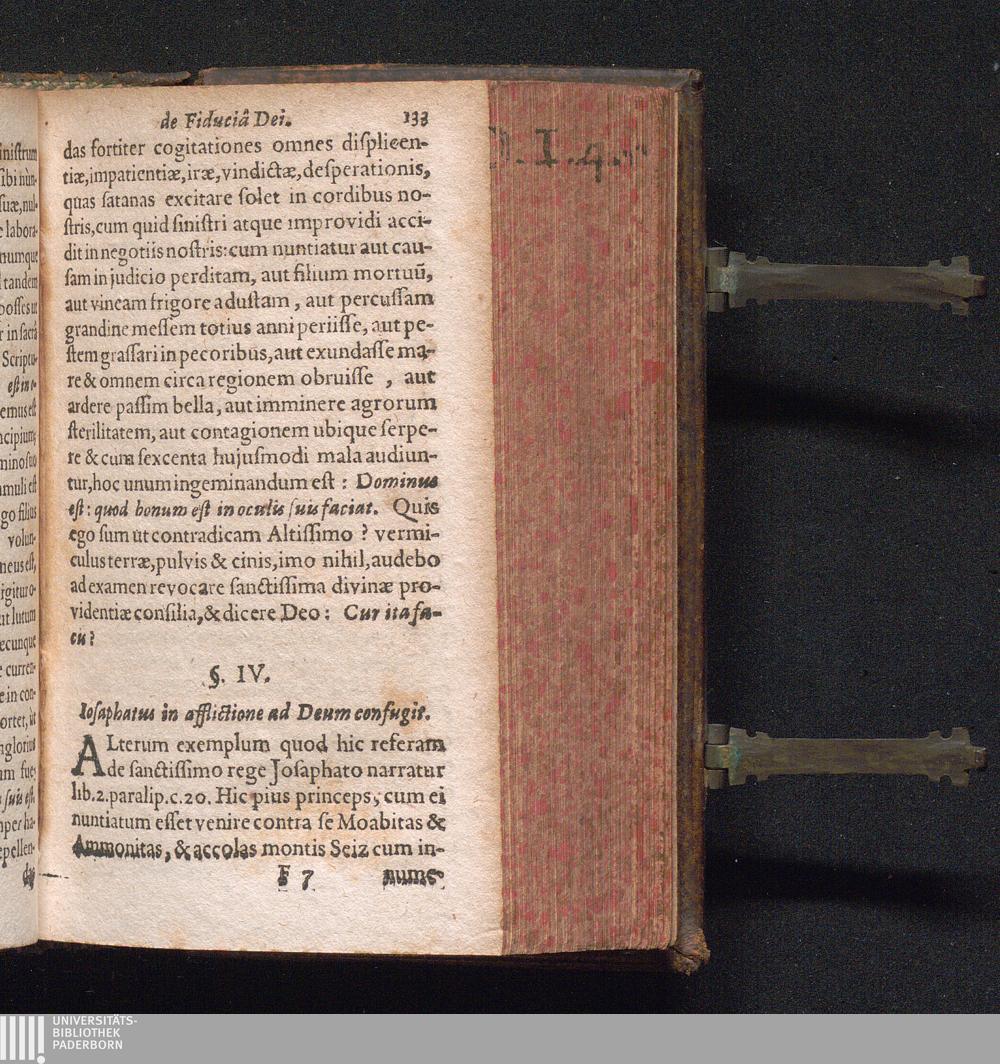 de Fiduciâ Dei. 133
das fortiter cogitationes omnes displicen-
tiæ, impatientiæ, iræ, vindictæ, desperationis,
quas satanas excitare solet in cordibus no-
stris, cum quid sinistri atque improvidi acci-
dit in negotiis nostris: cum nuntiatur aut cau-
sam in judicio perditam, aut filium mortuū,
aut vineam frigore adustam, aut percussam
grandine messem totius anni periisse, aut pe-
stem grassari in pecoribus, aut exundasse ma-
re & omnem circa regionem obruisse, aut
ardere passim bella, aut imminere agrorum
sterilitatem, aut contagionem ubique serpe-
re & cum sexcenta hujusmodi mala audiun-
tur, hoc unum ingeminandum est: Dominus
est: quod bonum est in oculis suis faciat. Quis
ego sum ut contradicam Altissimo? vermi-
culus terræ, pulvis & cinis, imo nihil, audebo
ad examen revocare sanctissima divinæ pro-
videntiæ consilia, & dicere Deo: Cur ita fa-
cis?
§. IV.
Iosaphatus in afflictione ad Deum confugit.
ALterum exemplum quod hic referam
de sanctissimo rege Josaphato narratur
lib. 2. paralip. c. 20. Hic pius princeps, cum ei
nuntiatum esset venire contra se Moabitas &
Ammonitas, & accolas montis Seiz cum in-
F 7 nume-
I. 4.
inistrum
sibi nùn-
suæ, nul-
e labora-
numque
tandem
posses ut
r in sacrâ
Scriptu-
est in o-
emus est
ncipium;
mino suo
amuli est
go filius
volun-
neus est,
igitur o-
ut lutum
æcunque
e curren-
e in con-
ortet, ùt
nglorius
um fue-
suis est.
per ha-
epellen-
das
UNIVERSITÄTS-
BIBLIOTHEK
PADERBORN